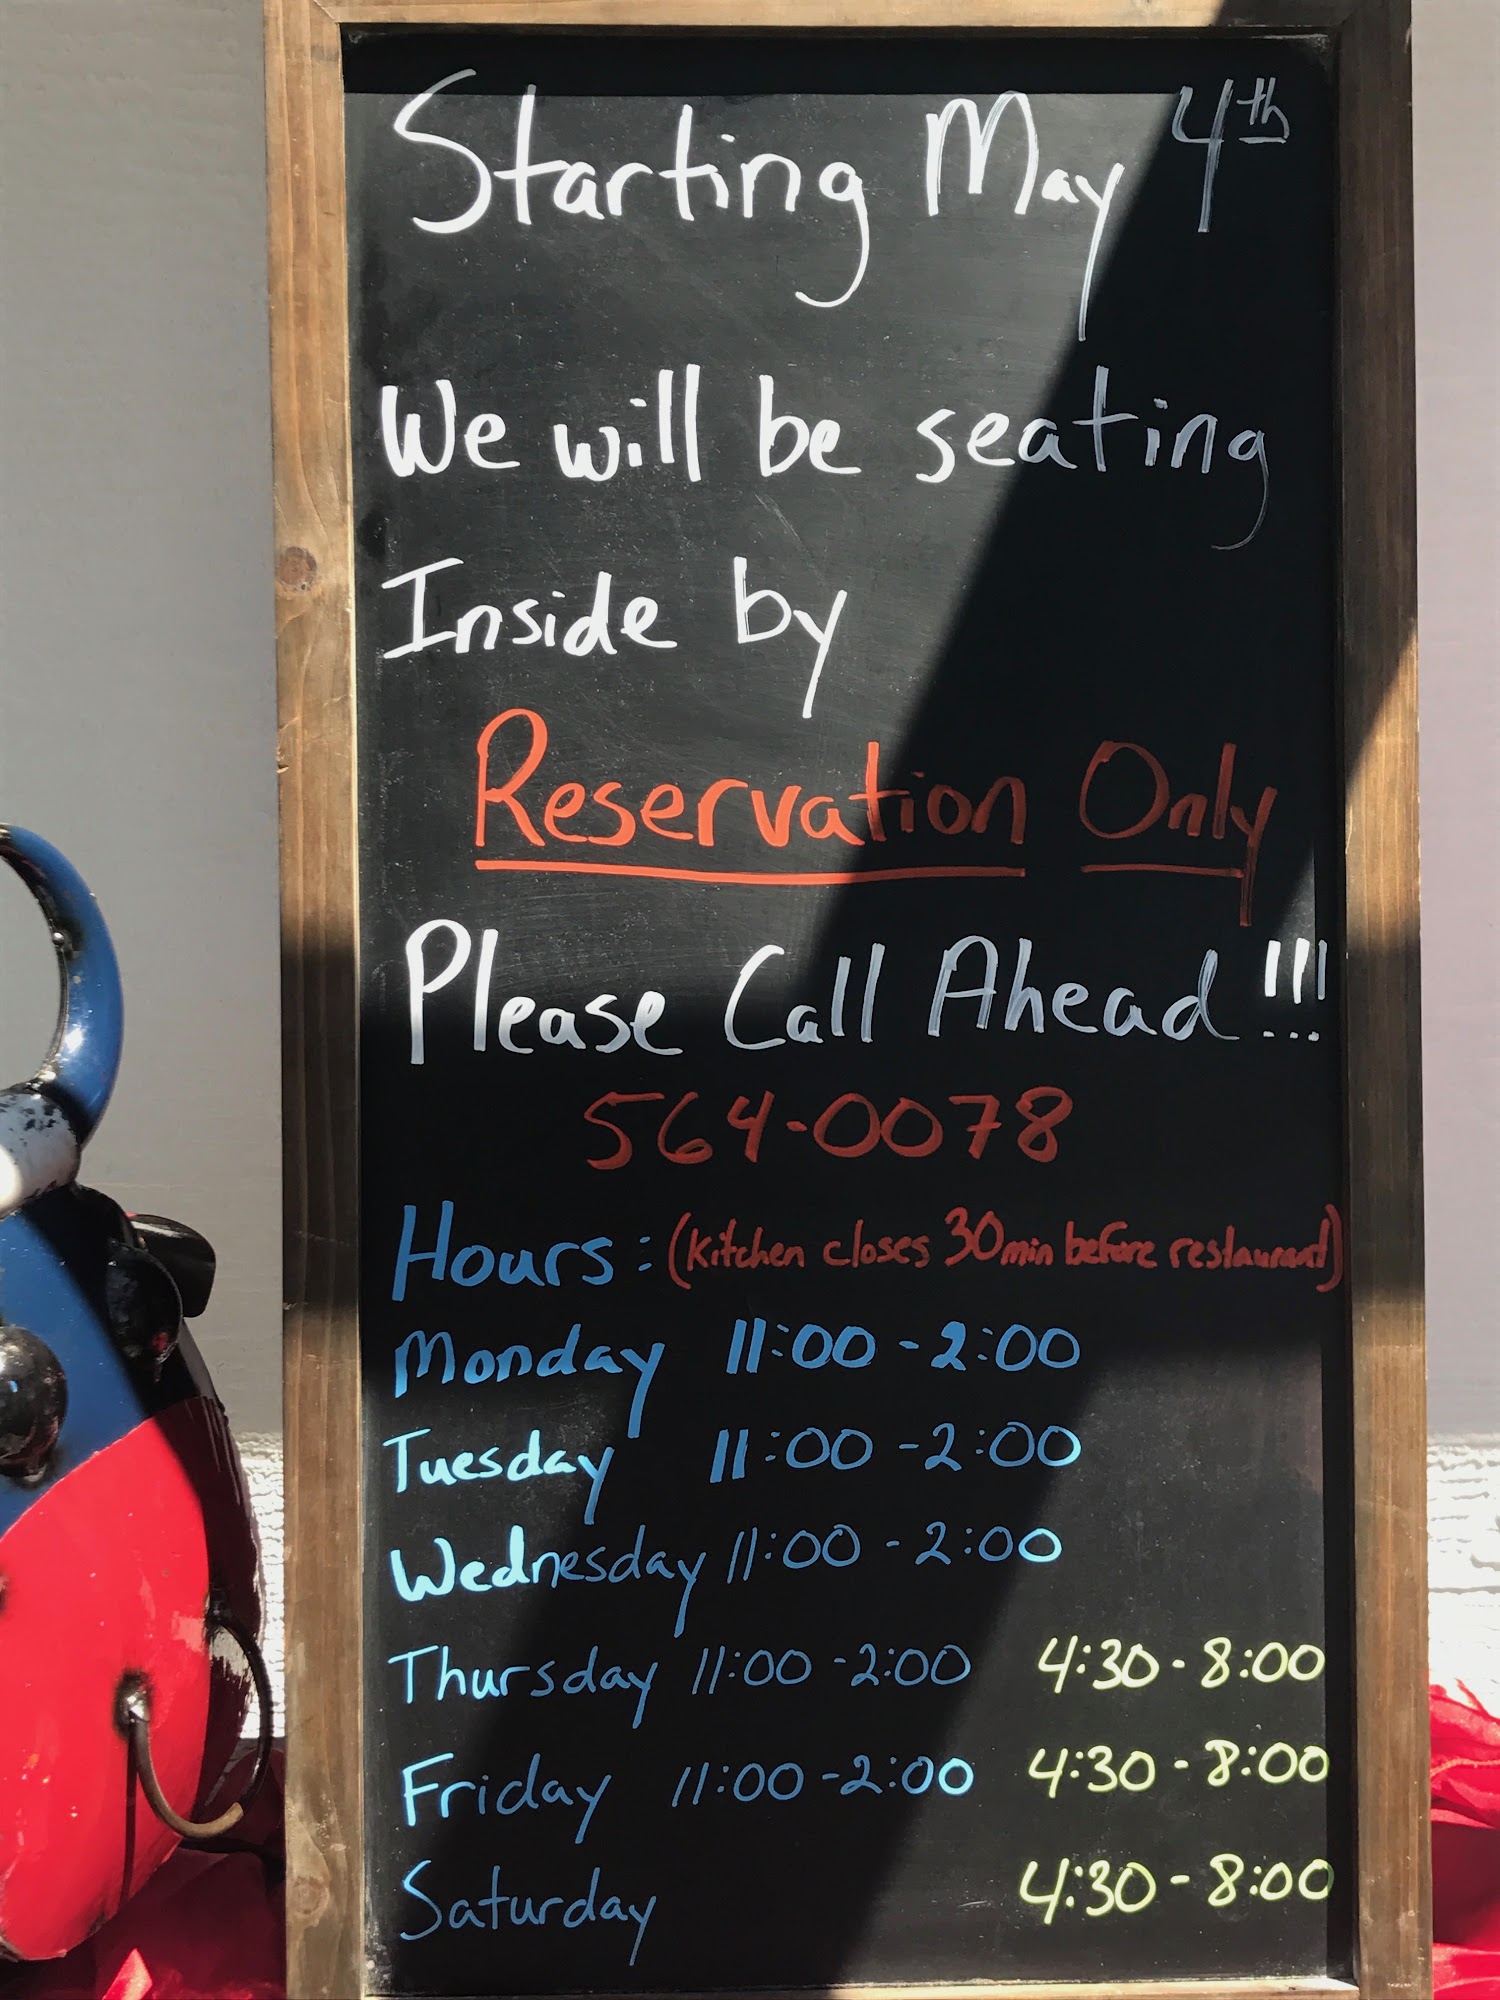 Starting May 4th
We will be seating
Inside by
Reservation Only
Please Call Ahead!!!
564-0078
Hours: (Kitchen closes 30min before restaurant)
Monday 11:00-2:00
Tuesday 11:00-2:00
Wednesday 11:00-2:00
Thursday 11:00-2:00 4:30-8:00
Friday 11:00-2:00 4:30-8:00
Saturday 4:30-8:00